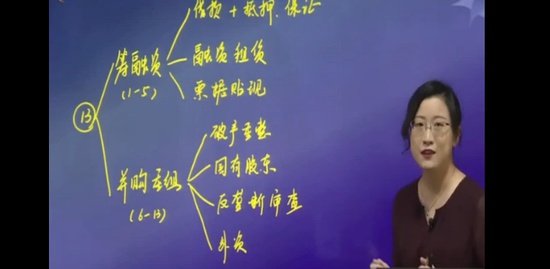 借款 + 抵押、保证
筹融资
(1-5)
融资租赁
票据贴现
13
破产重整
并购重组
(6-13)
国有股东
反垄断审查
外资